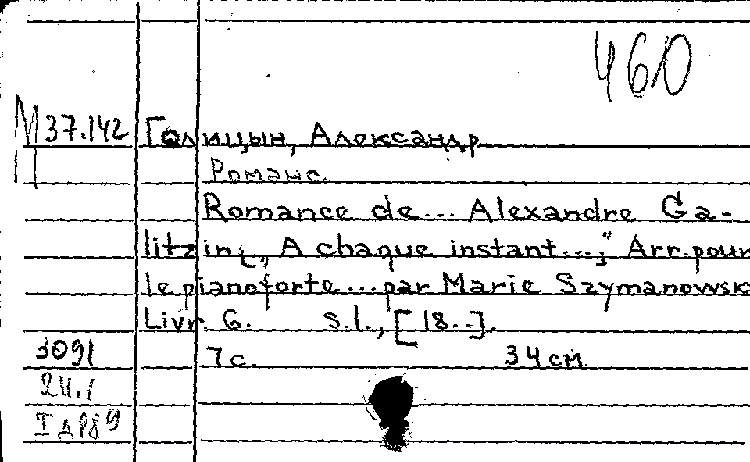 460
М37.142 Голицын, Александр
П Романс.
Romance de... Alexandre Ga-
litzin[„A chaque instant...”] Arr. pour
le pianoforte... par Marie Szymanowska
Livr. 6. s.l., [18..].
3091 7 с. 34 см